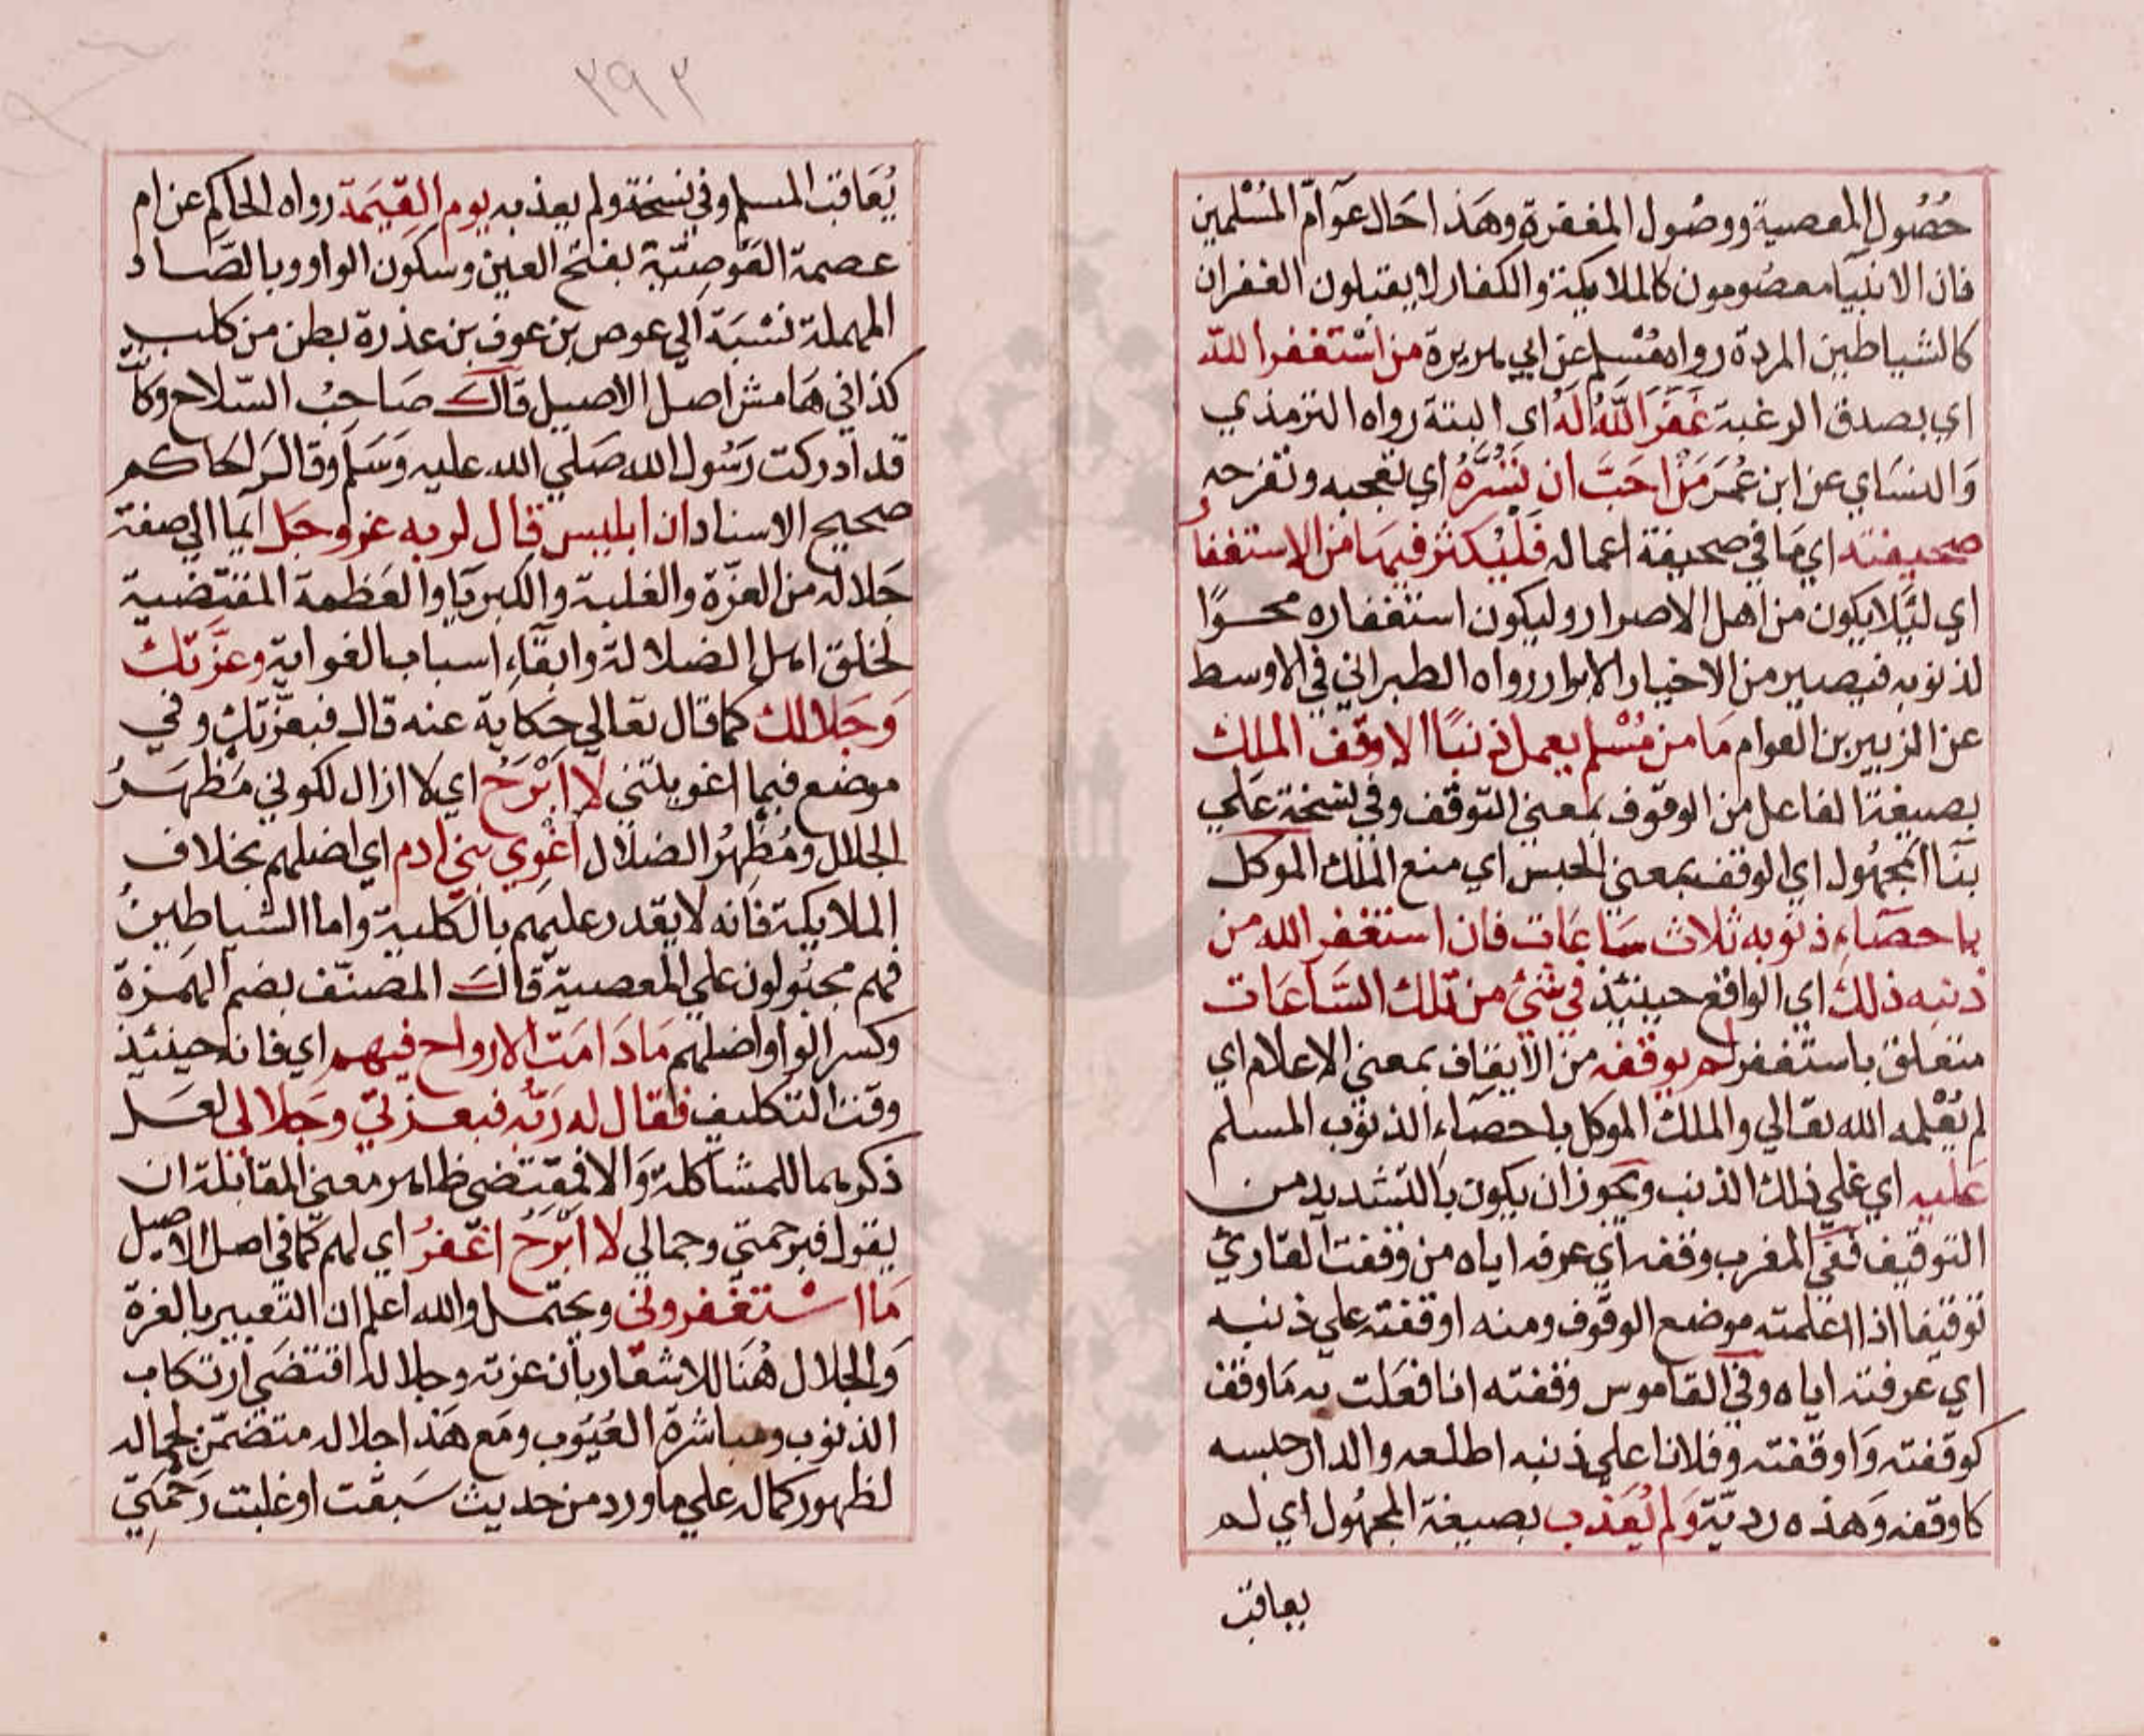 حُصُول المعصية ووصُول المغفرة وهَذا حَال عوَامّ المُسْلمين
فان الانبيآ معصُومون كالملايكة والكفار لا يقبلون الغفران
كالشياطين المردة رواه مُسْلم عن ابي هريرة من اسْتغفر الله
اي بصدق الرغبة غَفَرَ اللهُ لَهُ اي البتة رواه الترمذي
وَالنسَاي عن ابن عُمَرَ مَنْ احَبَّ ان تسُرَّهُ اي تعجبه وتفرحه
صحيفته اي مَا في صحيفة اعماله فَلْيُكثر فيهَا من الاستغفار
اي لئَلا يكون من اهل الاصرار وليكون استغفاره محوًا
لذنوبه فيصير من الاخيار الابرار رواه الطبراني في الاوسط
عن الزبير بن العوام مَا من مُسْلم يعمل ذنبًا الا وقف الملك
بصيغة الفاعل من الوقوف بمعني التوقف وفي نسخة عَلي
بنآ المجهُول اي الوقف بمعني الحبس اي منع الملك الموكل
باحصَاءِ ذنوبه ثلاث سَاعَات فان استغفر الله من
ذنبه ذلك اي الواقع حينئذ في شئ من تلك السَّاعَات
متعلق باستغفر لم يوقفه من الايقاف بمعني الاعلام اي
لم يُعْلمه الله تعَالي والملك الموكل باحصَاءِ الذنوب المسلم
عَليه اي علي ذلك الذنب ويجوز ان يكون بالتشديد من
التوقيف ففي المغرب وقفه اي عرفه اياه من وقفت القارئ
توقيفا اذا اعلمته موضع الوقوف ومنه اوقفته علي ذنبه
اي عرفته اياه وفي القاموس وقفته انا فعَلت به مَا وقف
كوقفته وَاوقفته وفلانا علي ذنبه اطلعه والدار حبسه
كاوقفه وَهَذه رديّة وَلم يُعَذب بصيغة المجهُول اي لم
يعاقب
٣٩٣
يُعَاقب المسلم وفي نسخة ولم يعذبه يوم القِيمَة رواه الحاكم عن ام
عصمة العَوصِيّة بفتح العين وسكون الواو وبالصَّاد
المهملة نسْبَة الي عوص بن عوف بن عذرة بطن من كلب
كذا في هَامش اصل الاصيل قال صَاحبُ السّلاح وَكانت
قد ادركت رَسُول الله صَلي الله عليه وَسَلم وقال الحاكم
صحيح الاسناد ان ابليس قال لربه عز وجَل ايمآ الي صفة
جَلاله من العزّة والغلبة والكبريَا والعَظمة المقتضية
لخلق اهل الضلالة وابقآءِ اسباب الغواية وعزّتك
وَجَلالك كما قال تعَالي حكاية عنه قال فبعزّتك وفي
موضع فبما اغويتني لا ابْرَحُ اي لا ازال لكوني مَظهَرُ
الجلال ومُظهِرُ الضلال اغْوي بني ادم اي اضلهم بخلاف
الملايكة فانه لا يقدر عليهم بالكلية واما الشياطينُ
فهم مجبُولون علي المعصية قال المصنّف بضم الهمزة
وكسر الواو اضلهم مَا دَامَت الارواح فيهم اي فانه حينئذ
وقت التكليف فقال له رَبّه فبعزتي وجَلالي لعَل
ذكرهما للمشاكلة وَالا فمقتضي ظاهر معني المقابلة ان
يقول فبرحمتي وجمالي لا ابْرَحُ اغْفرُ اي لهم كما في اصل الاصيل
مَا اسْتغفروني ويحتمل والله اعلم ان التعبير بالعزة
وَالجلال هُنَا للاشعَار بان عزته وجلاله اقتضَي ارتكاب
الذنوب ومباشرة العُيُوب ومَع هَذا جلاله متضمّن لجماله
لظهور كماله علي ما ورد من حديث سَبقت او غلبت رَحْمَتي